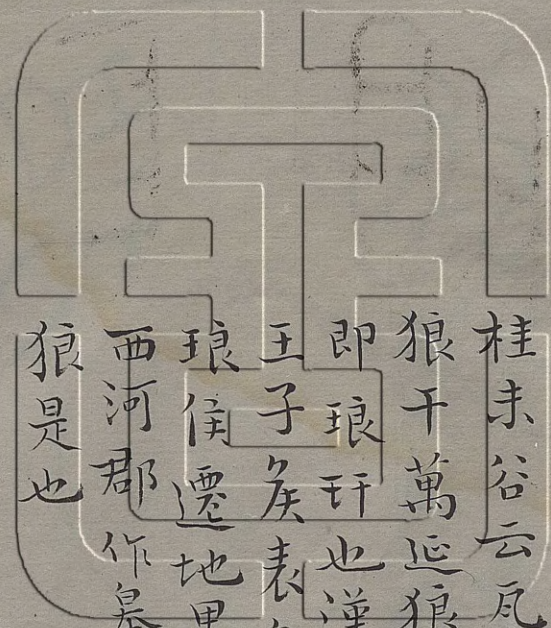 桂未谷云瓦
狼干萬延狼
即琅玕也漢
王子矦表
琅侯遷地
西河郡作皋
狼是也